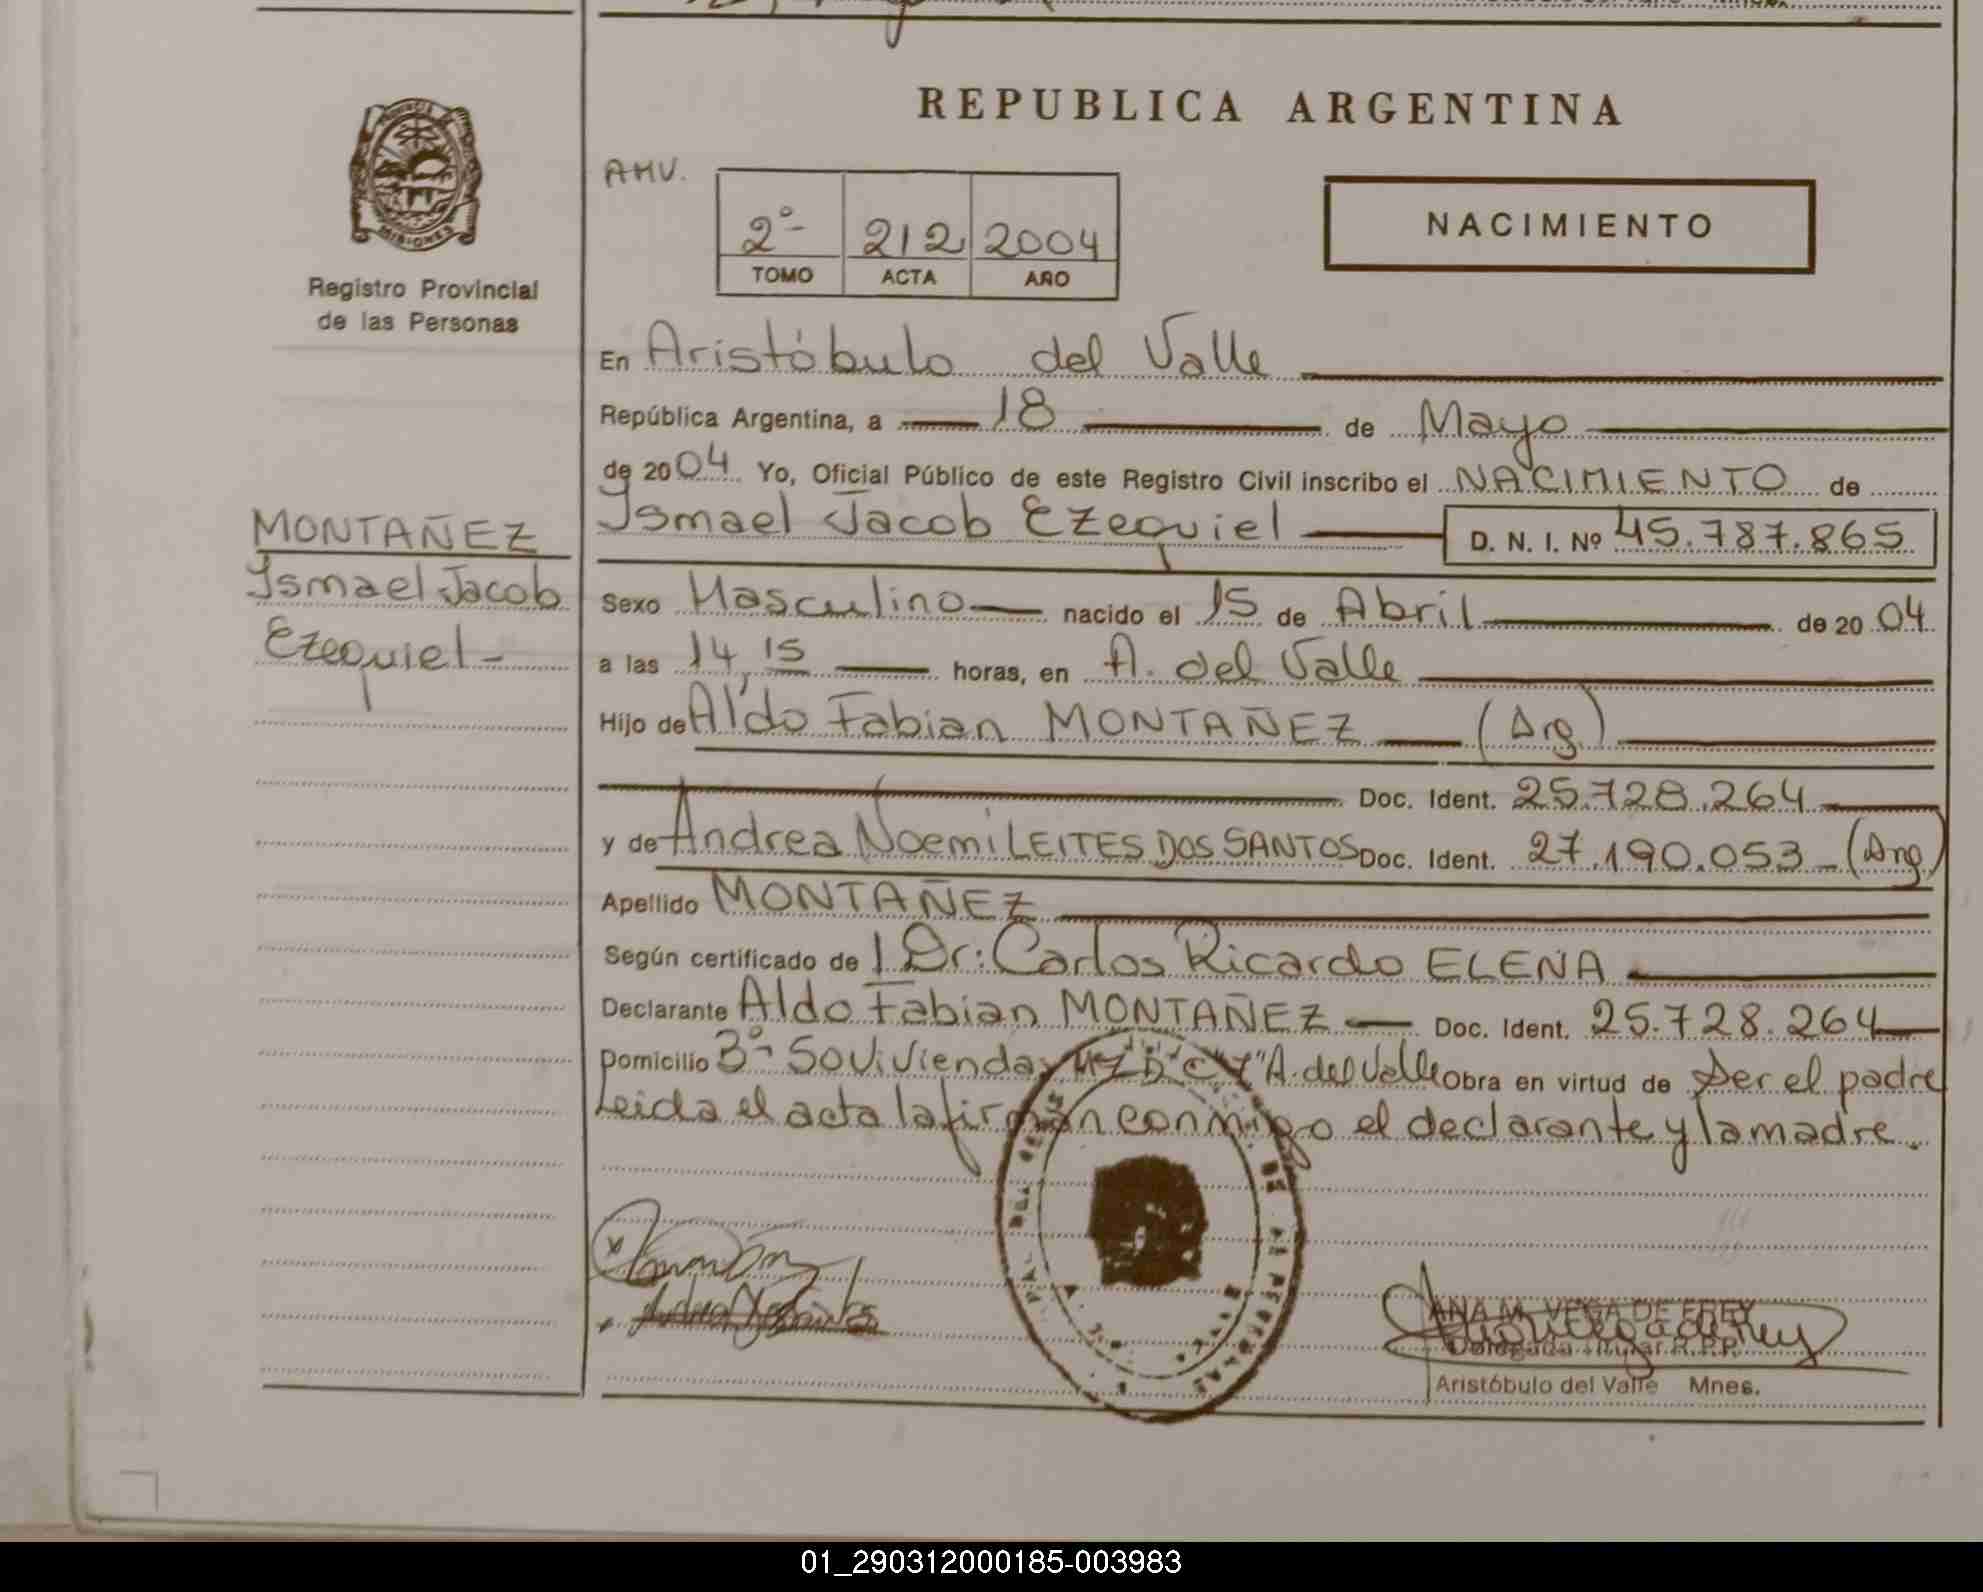 REPUBLICA ARGENTINA
PROVINCIA
MISIONES
Registro Provincial
de las Personas
AMV.
2º- 212 2004
TOMO ACTA AÑO
NACIMIENTO
En Aristóbulo del Valle
República Argentina, a 18 de Mayo
de 2004 Yo, Oficial Público de este Registro Civil inscribo el NACIMIENTO de
Ismael Jacob Ezequiel D. N. I. Nº 45.787.865
MONTAÑEZ
Ismael Jacob
Ezequiel-
Sexo Masculino nacido el 15 de Abril de 2004
a las 14,15 horas, en A. del Valle
Hijo de Aldo Fabian MONTAÑEZ (Arg.)
Doc. Ident. 25.728.264
y de Andrea Noemi LEITES DOS SANTOS Doc. Ident. 27.190.053 - (Arg)
Apellido MONTAÑEZ
Según certificado de l Dr: Carlos Ricardo ELENA
Declarante Aldo Fabian MONTAÑEZ Doc. Ident. 25.728.264
Domicilio 3º- 50 Viviendas A. del Valle Obra en virtud de Ser el padre
Leida el acta la firman conmigo el declarante y la madre.
ANA M. VEGA DE FREY
Delegada Titular R.P.P.
Aristóbulo del Valle Mnes.
01_290312000185-003983